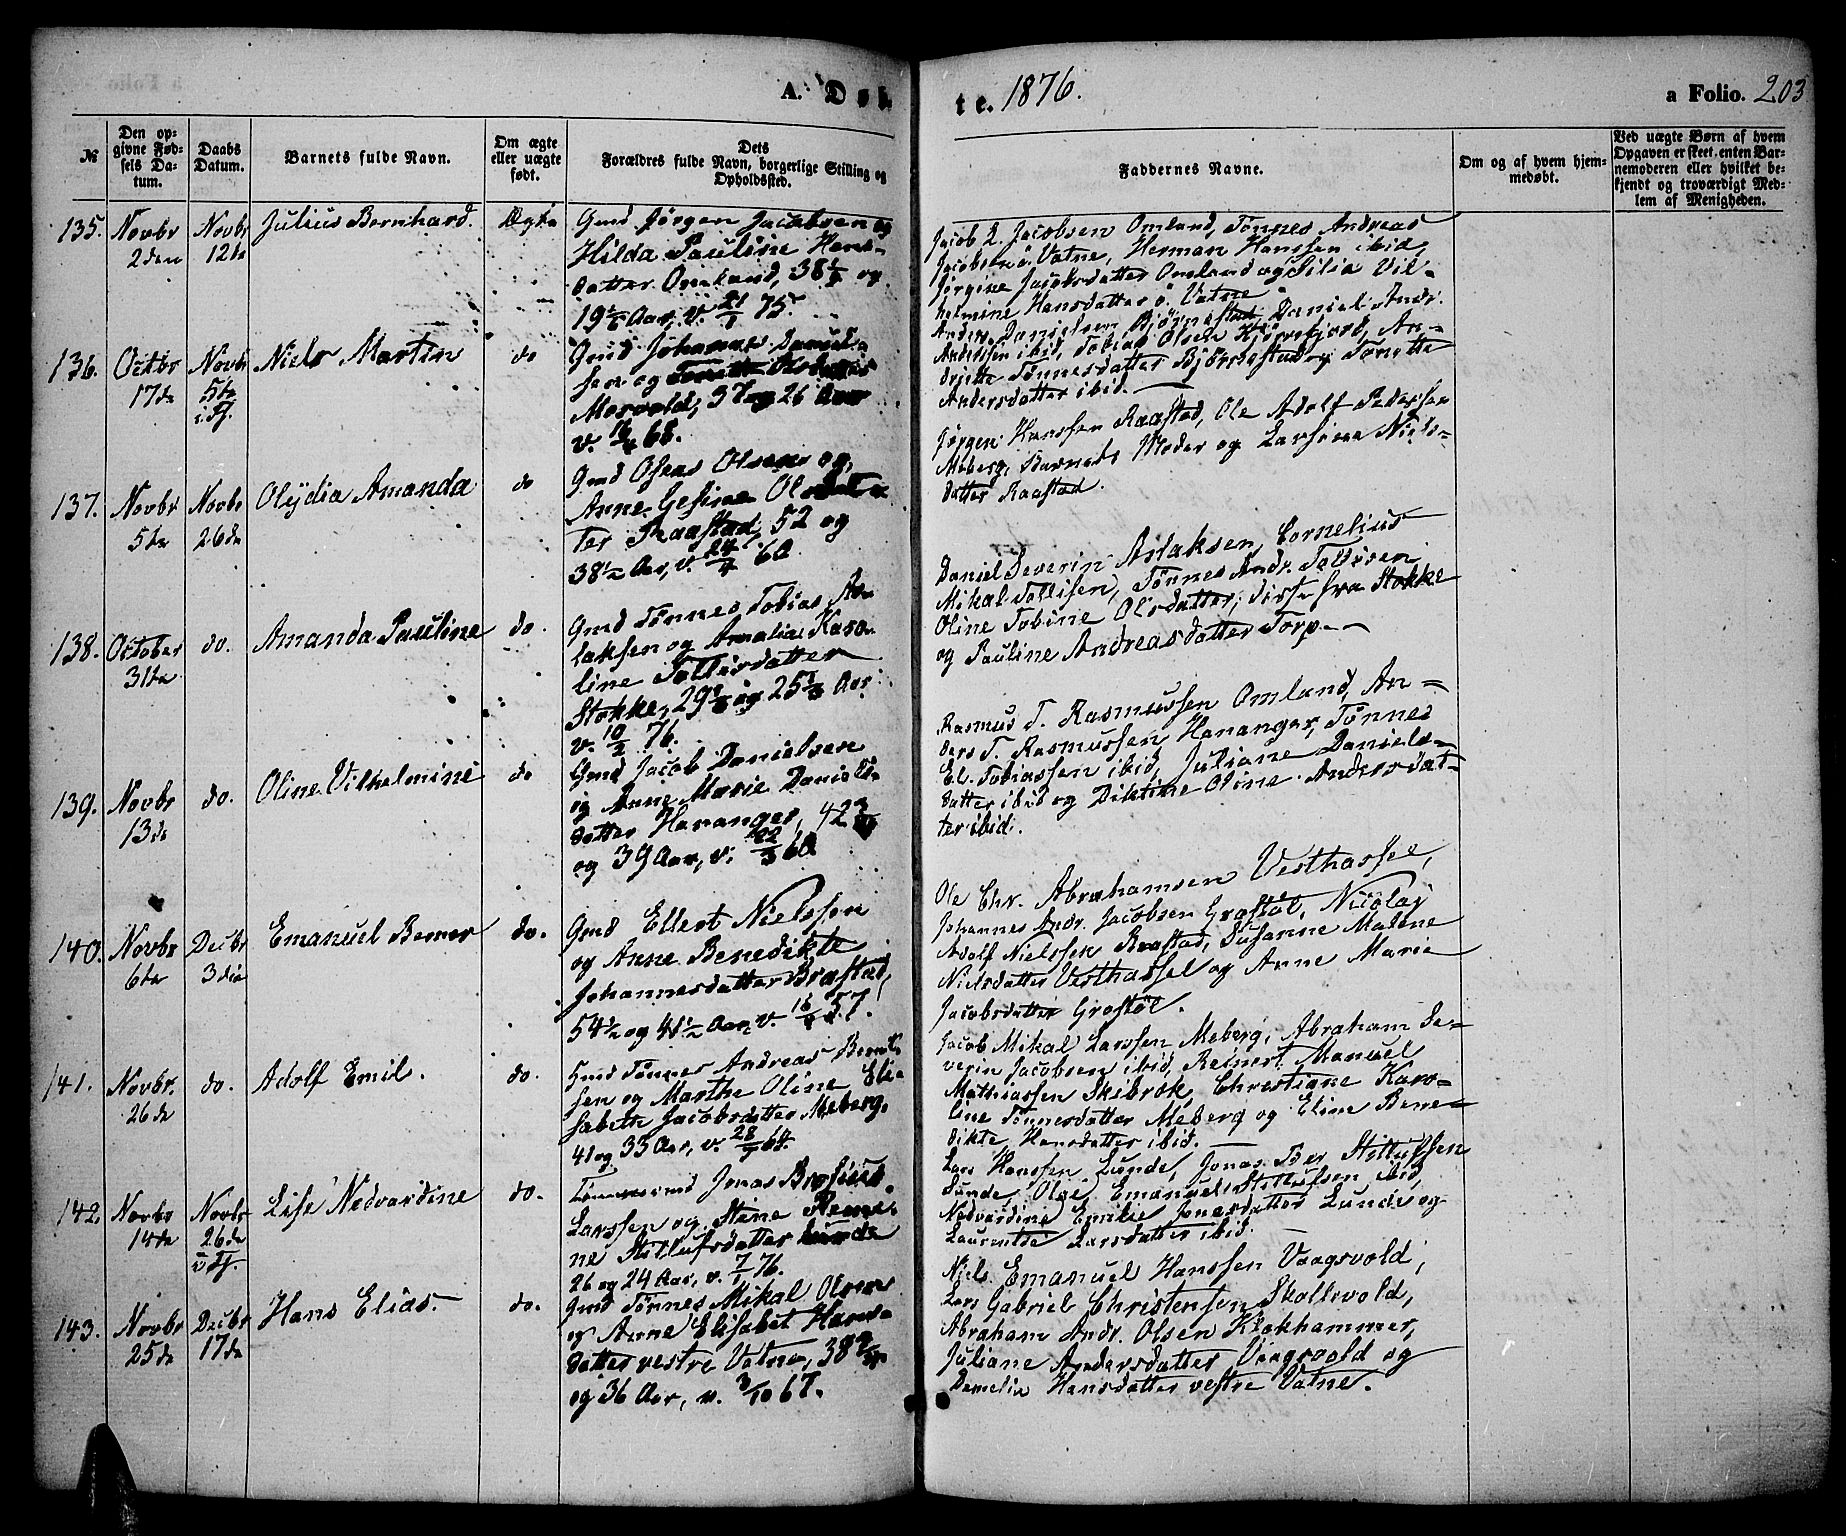 A. Døb-
te. 1876.
a Folio. 203
№
Den op-
givne Fød-
sels Da-
tum.
Daabs
Datum.
Barnets fulde Navn.
Om ægte
eller uægte
født.
Dets
Forældres fulde Navn, borgerlige Stilling og
Opholdssted.
Faddernes Navne.
Om og af hvem hjem-
medøbt.
Ved uægte Børn af hvem
Opgaven er skeet, enten Bar-
nemoderen eller hvilket be-
kjendt og troværdigt Med-
lem af Menigheden.
135.
Novbr
2den
Novbr
12te
Julius Bernhard.
Ægte
Gmd Jørgen Jacobsen og
Hilda Pauline Hans-
datter Omland, 38 og
19 Aar, v. 21/1 75.
Jacob L. Jacobsen Omland, Tønnes Andreas
Jacobsen ö. Vatne, Herman Hanssen ibid,
Jørgine Jacobsdatter Omland og Silia Vil-
helmine Hansdatter ö. Vatne
136.
Octbr
17de
Novbr
5te
i Kj.
Niels Martin
do
Gmd Johannes Daniel-
sen og
Mosvold, 37 og 26 Aar
v. 68.
Anders Danielsen Bjørnestad, Daniel Andr.
Anderssen ibid, Tobias Olsen Kjørrefjord, An-
drjette Tønnesdatter Bjørnestad og Tonette
Andersdatter ibid.
137.
Novbr
5te
Novbr
26de
Olydia Amanda
do
Gmd Oseas Olsen og
Anne Gesine Olsdat-
ter Raastad, 52 og
38½ Aar, v. 24/4 60.
Jørgen Hanssen Raastad, Ole Adolf Pedersen
Meberg, Barnets Moder og Larsine Niels-
datter Raastad.
138.
October
31te
do.
Amanda Pauline
do.
Gmd Tønnes Tobias As-
laksen og Amalia Karo-
line Tollisdatter
Stokke, 29 og 25 Aar
v. 10/2 76.
Daniel Severin Aslaksen, Cornelius
Mikal Tollisen, Tønnes Andr. Tollisen
Oline Tobine Olsdatter, disse fra Stokke
og Pauline Andreasdatter Torp.
139.
Novbr
13de
do.
Oline Vilhelmine
do
Gmd Jacob Danielsen
og Anne Marie Daniels-
datter Hananger, 42
og 39 Aar, v. 22/3 60
Rasmus T. Rasmussen Omland, An-
ders T. Rasmussen Hananger, Tønnes
El. Tobiassen ibid, Juliane Daniels-
datter ibid og Diktine Oline Andersdat-
ter ibid.
140.
Novbr
6te
Decbr
3die
Emanuel Berner
do.
Gmd Ellert Nielssen
og Anne Benedikte
Johannesdatter Brastad,
54½ og 41½ Aar, v. 57.
Ole Chr. Abrahamsen Vesthassel,
Johannes Andr. Jacobsen Grostøl, Nicolay
Adolf Nielssen Raastad, Susanne Malene
Nielsdatter Vesthassel og Anne Marie
Jacobsdatter Grostøl.
141.
Novbr.
26de
do.
Adolf Emil.
do.
Gmd Tønnes Andreas Bernt-
sen og Marthe Oline Eli-
sabeth Jacobsdatter Meberg,
41 og 33 Aar, v. 28 64.
Jacob Mikal Larssen Meberg, Abraham Se-
verin Jacobsen ibid, Reinert Manuel
Mathiassen Skibrok, Christiane Karo-
line Tønnesdatter Meberg og Eline Bene-
dikte Hansdatter ibid.
142
Novbr
14de
Novbr
26de
i Kj.
Lise Nedvardine
do.
Tømmermd Jonas Brosius
Larssen og Stine Reme-
ne Stillufsdatter Lunde
26 og 24 Aar, v. 7/1 76.
Lars Hanssen Lunde, Jonas Ber. Stillufsen
Lunde, Olai Emanuel Stillufsen ibid,
Nedvardine Emilie Jonasdatter Lunde og
Laurentse Larsdatter ibid.
143.
Novbr
25de
Decbr
17de
Hans Elias.
do.
Gmd Tønnes Mikal Olsen
og Anne Elisabet Hans-
datter vestre Vatne, 38
og 36 Aar, v. 3/10 67.
Niels Emanuel Hanssen Vaagsvold,
Lars Gabriel Christensen Skollevold,
Abraham Andr. Olsen Klokhammer,
Juliane Andersdatter Vaagsvold og
Damelia Hansdatter vestre Vatne.